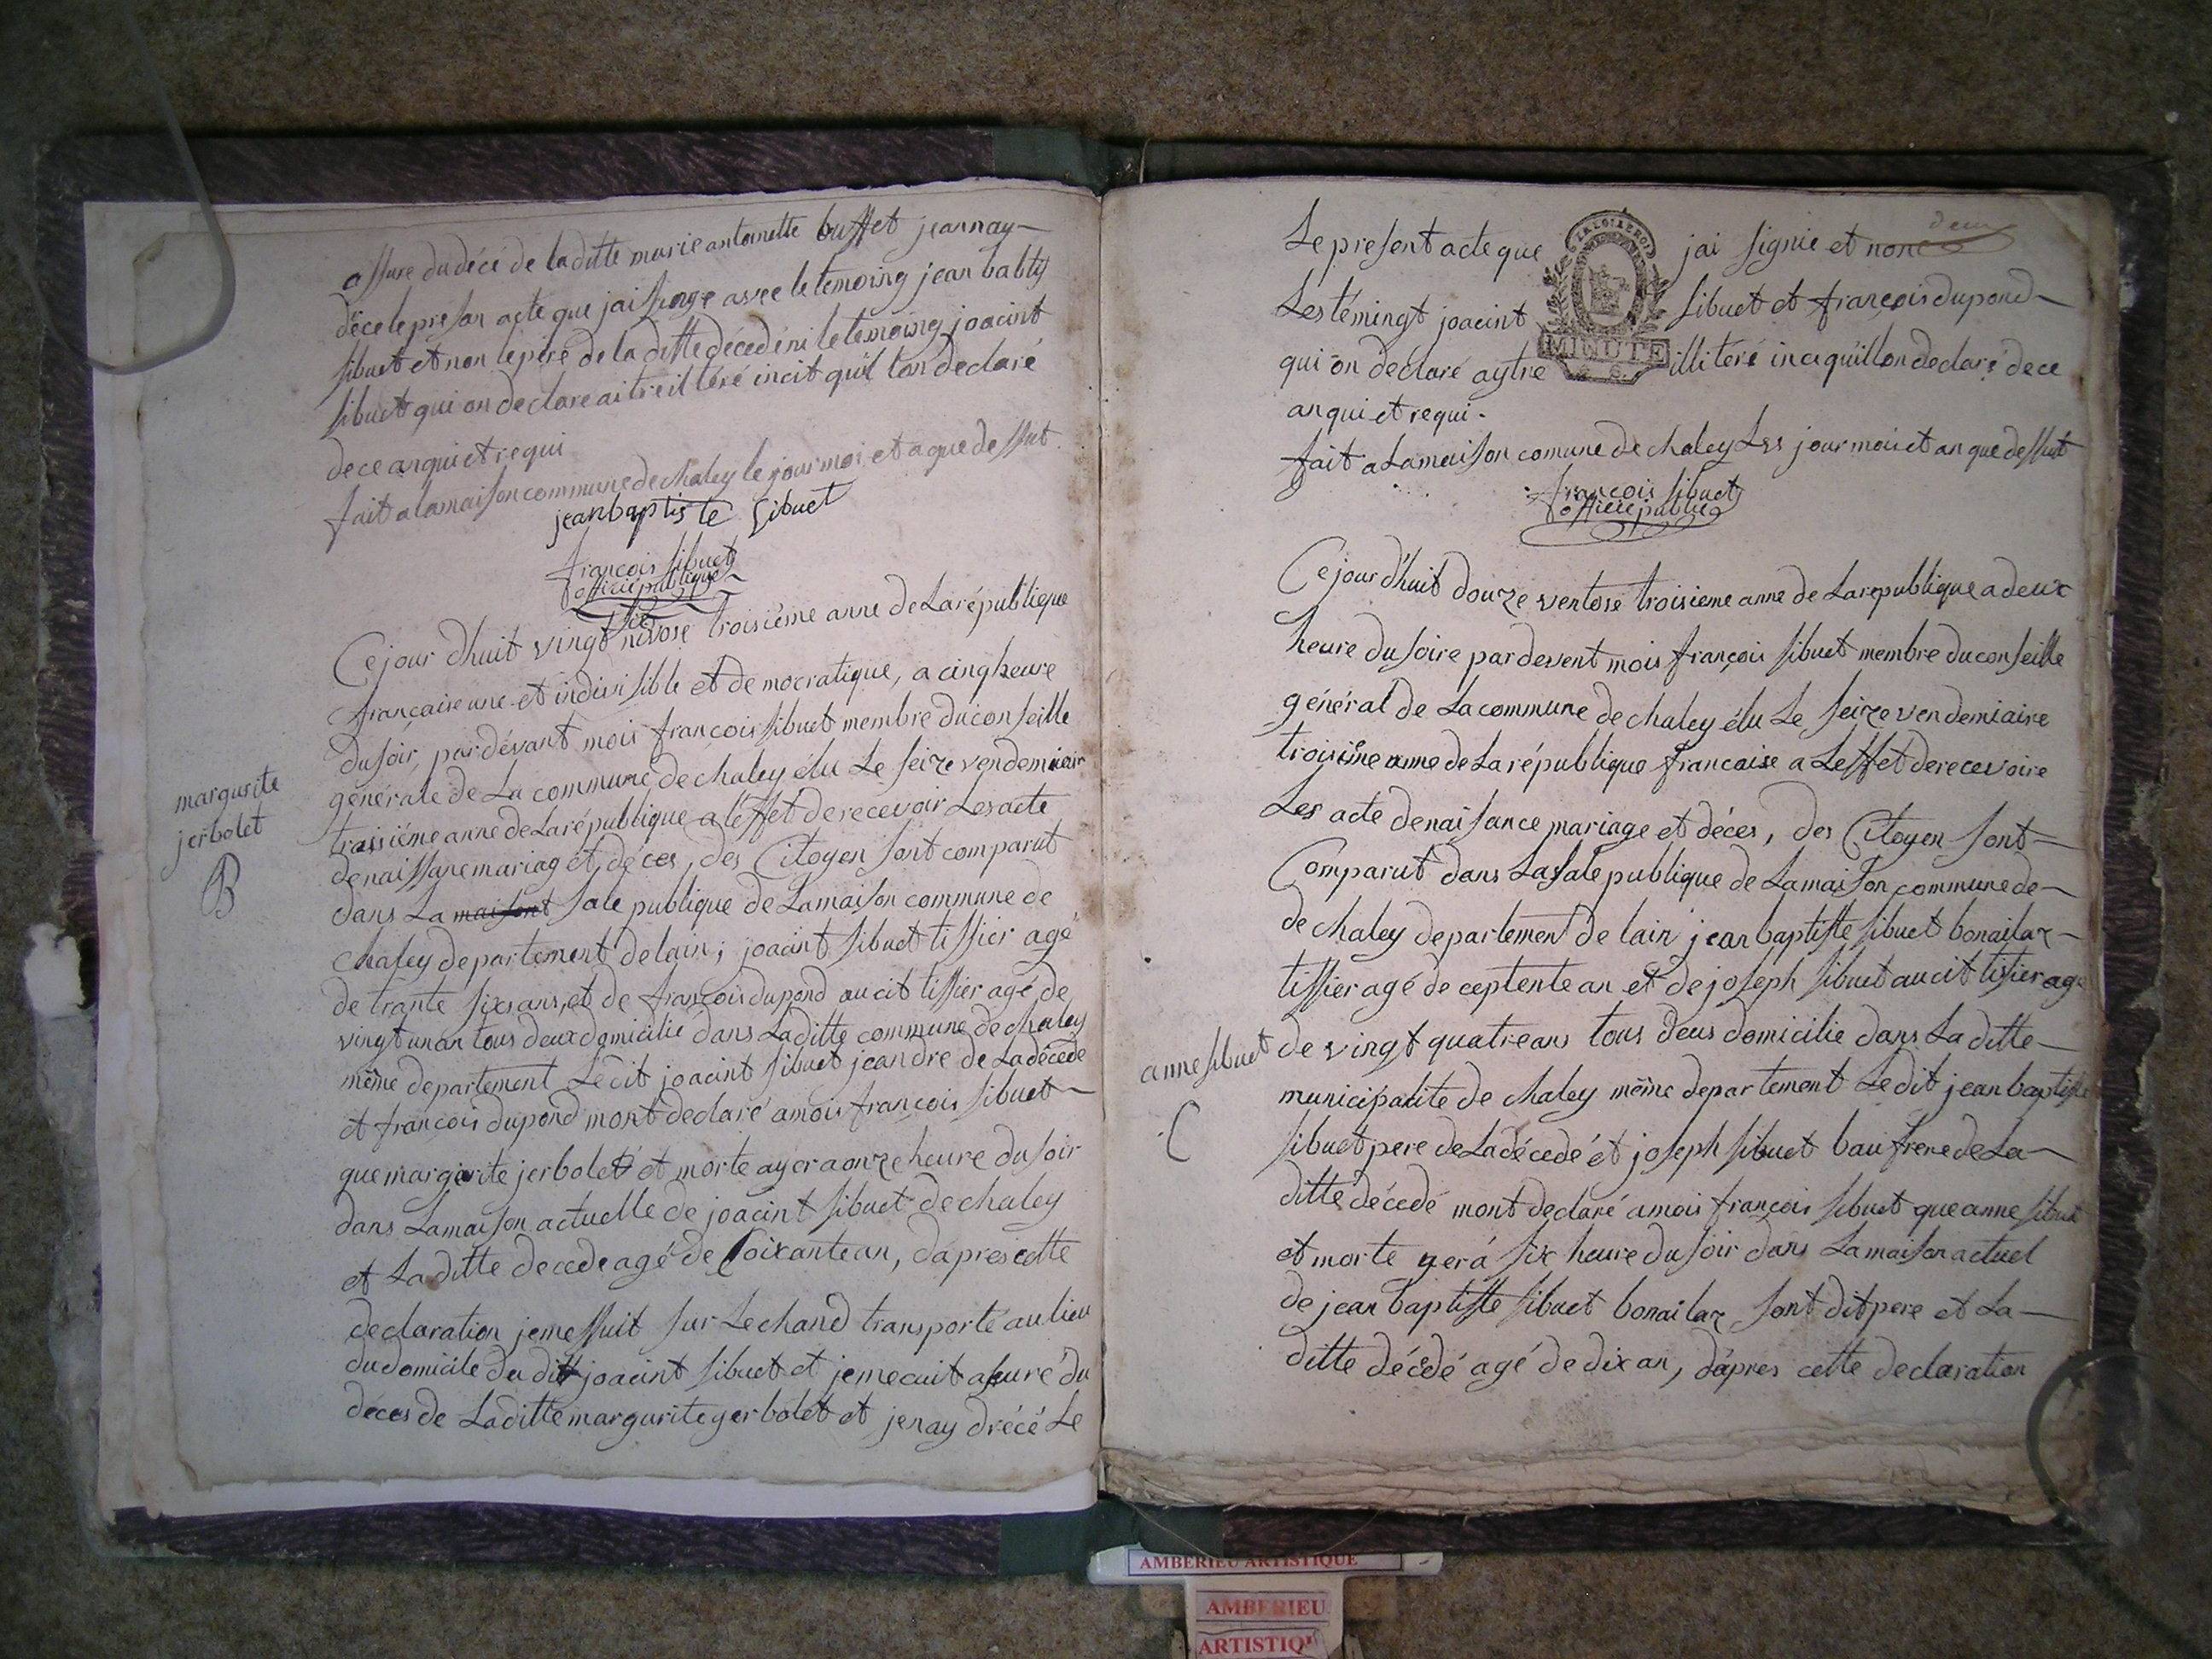 assure du décé de laditte marie antoinette buffet jeannay
décé le preson acte que jai signge avec le temoing jean babtis
sibuet et non le père de la ditte décedé ni le temoing joacint
sibuet qui on declare aitre illtéré incit qu'il lon declaré
de ce anqui et requi
fait a lamaison commune de chaley le jour moi et a que dessut
jean baptiste Sibuet
françois sibuet
officié publique
six
Ce jour dhuit vingt nivose troisiéme anne de La république
française une et indivisible et democratique, a cinq heure
du soir, pardévant mois françois sibuet membre du conseille
générale de La commune de chaley élu Le seize vendemiair
troisiéme anne de La république a leffet de recevoir Les acte
de naissane mariag et déces, des Citoyen sont comparut
margurite
jerbolet
B
dans La maisont sale publique de La maison commune de
chaley departement de lain; joacint sibuet tissier agé
de trante six ans, et de françois dupond aucit tissier agé de
vingt un an tous deux domicilie dans La ditte commune de chaley
même departement Ledit joacint sibuet jeandre de La décede
et françois dupond mont declaré a mois françois sibuet
que margurite jerbolet et morte ayer a onze heure du soir
dans La maison actuelle de joacint sibuet de chaley
et La ditte decede agé de soixante an, dapres cette
declaration je me ssuit sur Le chand transporté au lieu
du domicile du dit joacint sibuet et je me cuit aseuré du
déces de La ditte margurite gerbolet et jenay drécé Le
Le present acte que jai signie et non deux
LA LOI LE ROI
MINUTE
Les témingt joacint sibuet et françois dupond
qui on declaré aytre illitéré inci quillon declaré de ce
anqui et requi.
fait a La maison comune de chaley Les jour mois et an que dessut
françois sibuet
officié public
Ce jour d'huit douze ventose troisieme anne de La republique a deux
heure du soire par devent mois françois sibuet membre du conseille
général de La commune de chaley élu Le seize vendemiaire
troisiême anne de La république francaise a Leffet de recevoire
Les acte de naisance mariage et déces, des Citoyen sont
Comparut dans La sale publique de La maison commune de
de chaley departement de lain jean baptiste sibuet bonailaz
tissier agé de ceptente an et de joseph sibuet aucit tissier age
anne sibuet
C
de vingt quatre ans tous deus domicilie dans La ditte
municipalite de chaley même departement Le dit jean baptiste
sibuet pere de La décedé et joseph sibuet bau frere de La
ditte décedé mont declaré a mois françois sibuet que anne sibuet
et morte yer á six heure du soir dans La maison actuel
de jean baptiste sibuet bonailaz sont dit pere et La
ditte décedé agé de dix an, dápres cette declaration
AMBERIEU ARTISTIQUE
AMBERIEU
ARTISTIQU